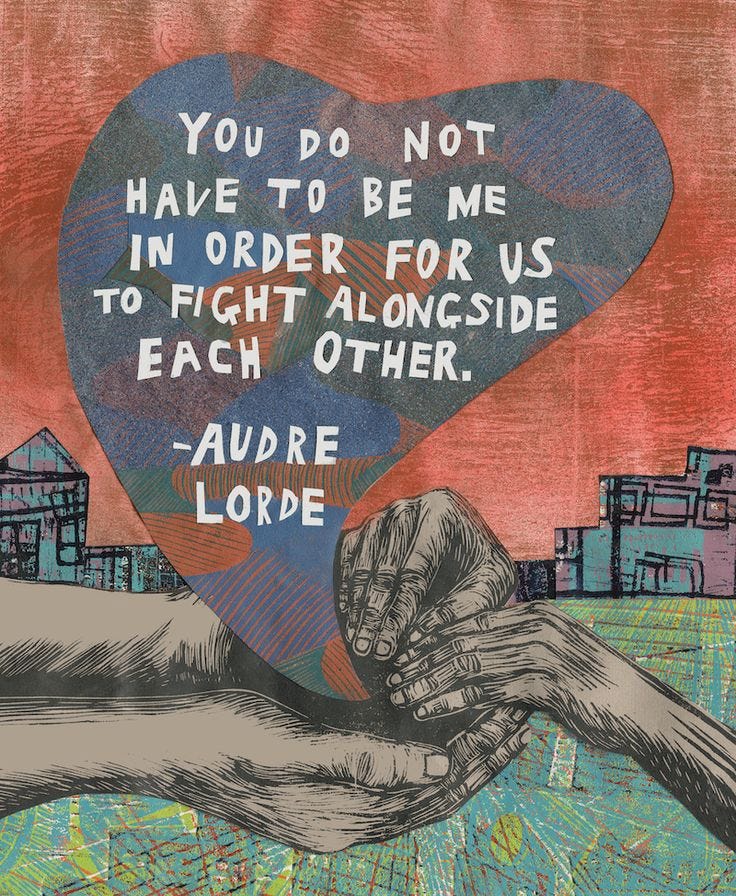 YOU DO NOT
HAVE TO BE ME
IN ORDER FOR US
TO FIGHT ALONGSIDE
EACH OTHER.
-AUDRE
LORDE